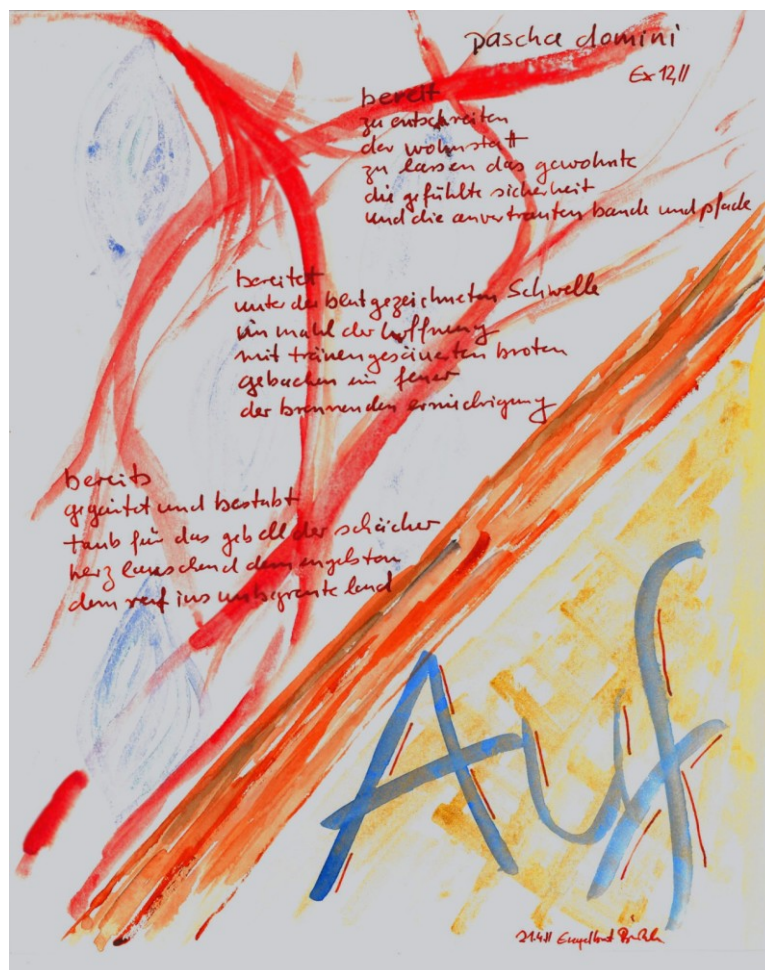 pascha domini
Ex 12,11
bereit
zu entschreiten
der wohnstatt
zu lassen das gewohnte
die gefühlte sicherheit
und die anvertrauten bande und pfade
bereitet
unter der blutgezeichneten Schwelle
ein mahl der hoffnung
mit tränengesäuerten broten
gebacken im feuer
der brennenden erniedrigung
bereits
gegürtet und bestabt
taub für das gebell der schächer
herz lauschend dem engelston
dem ruf ins unbegrenzte land
Auf
21.4.11